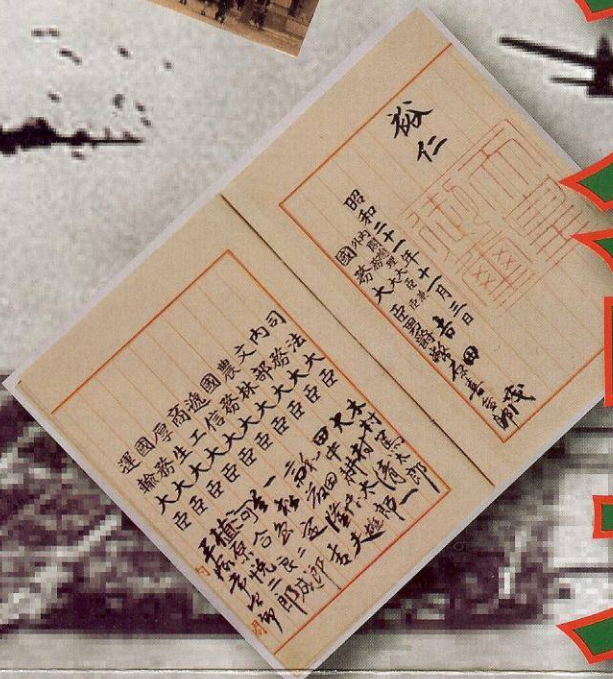 裕仁
天皇御璽
昭和二十一年十一月三日
內閣總理大臣兼
外務大臣 吉田茂
國務大臣 男爵 幣原喜重郎
司法大臣 木村篤太郎
內務大臣 大村清一
文部大臣 田中耕太郎
農林大臣 和田博雄
國務大臣 斎藤隆夫
遞信大臣 一松定吉
商工大臣 星島二郎
厚生大臣 河合良成
國務大臣 植原悦二郎
運輸大臣 平塚常次郎
內閣